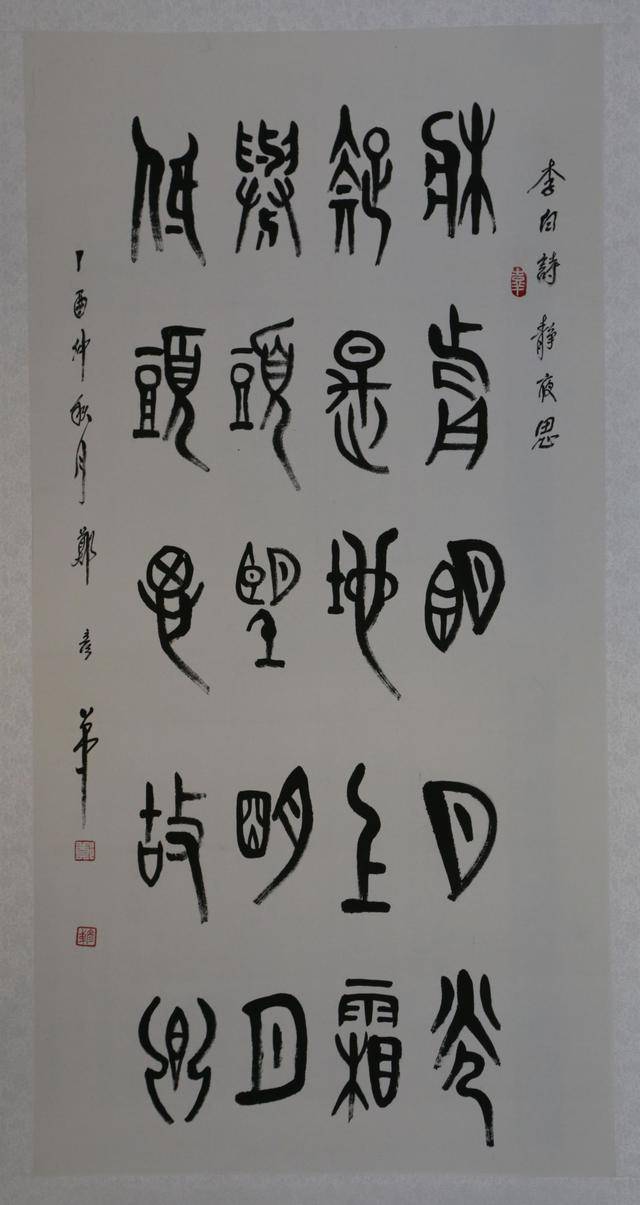 李白詩 靜夜思
牀前明月光
疑是地上霜
舉頭望明月
低頭思故鄉
丁酉仲秋月 鄭彥